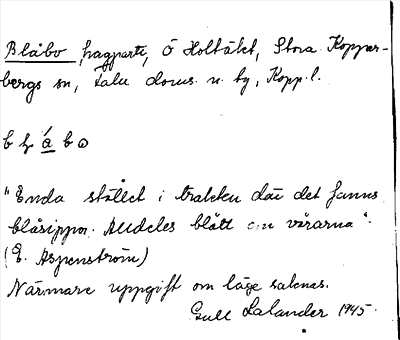 Blåbo, hagparti, Ö Holtäkt, Stora Koppar-
bergs sn, Falu doms. o. tg, Kopp. l.
"Enda stället i trakten där det fanns
blåsippor. Alldeles blått om vårarna".
(E. Aspenström)
Närmare uppgift om läge saknas.
Gull Lalander 1945.